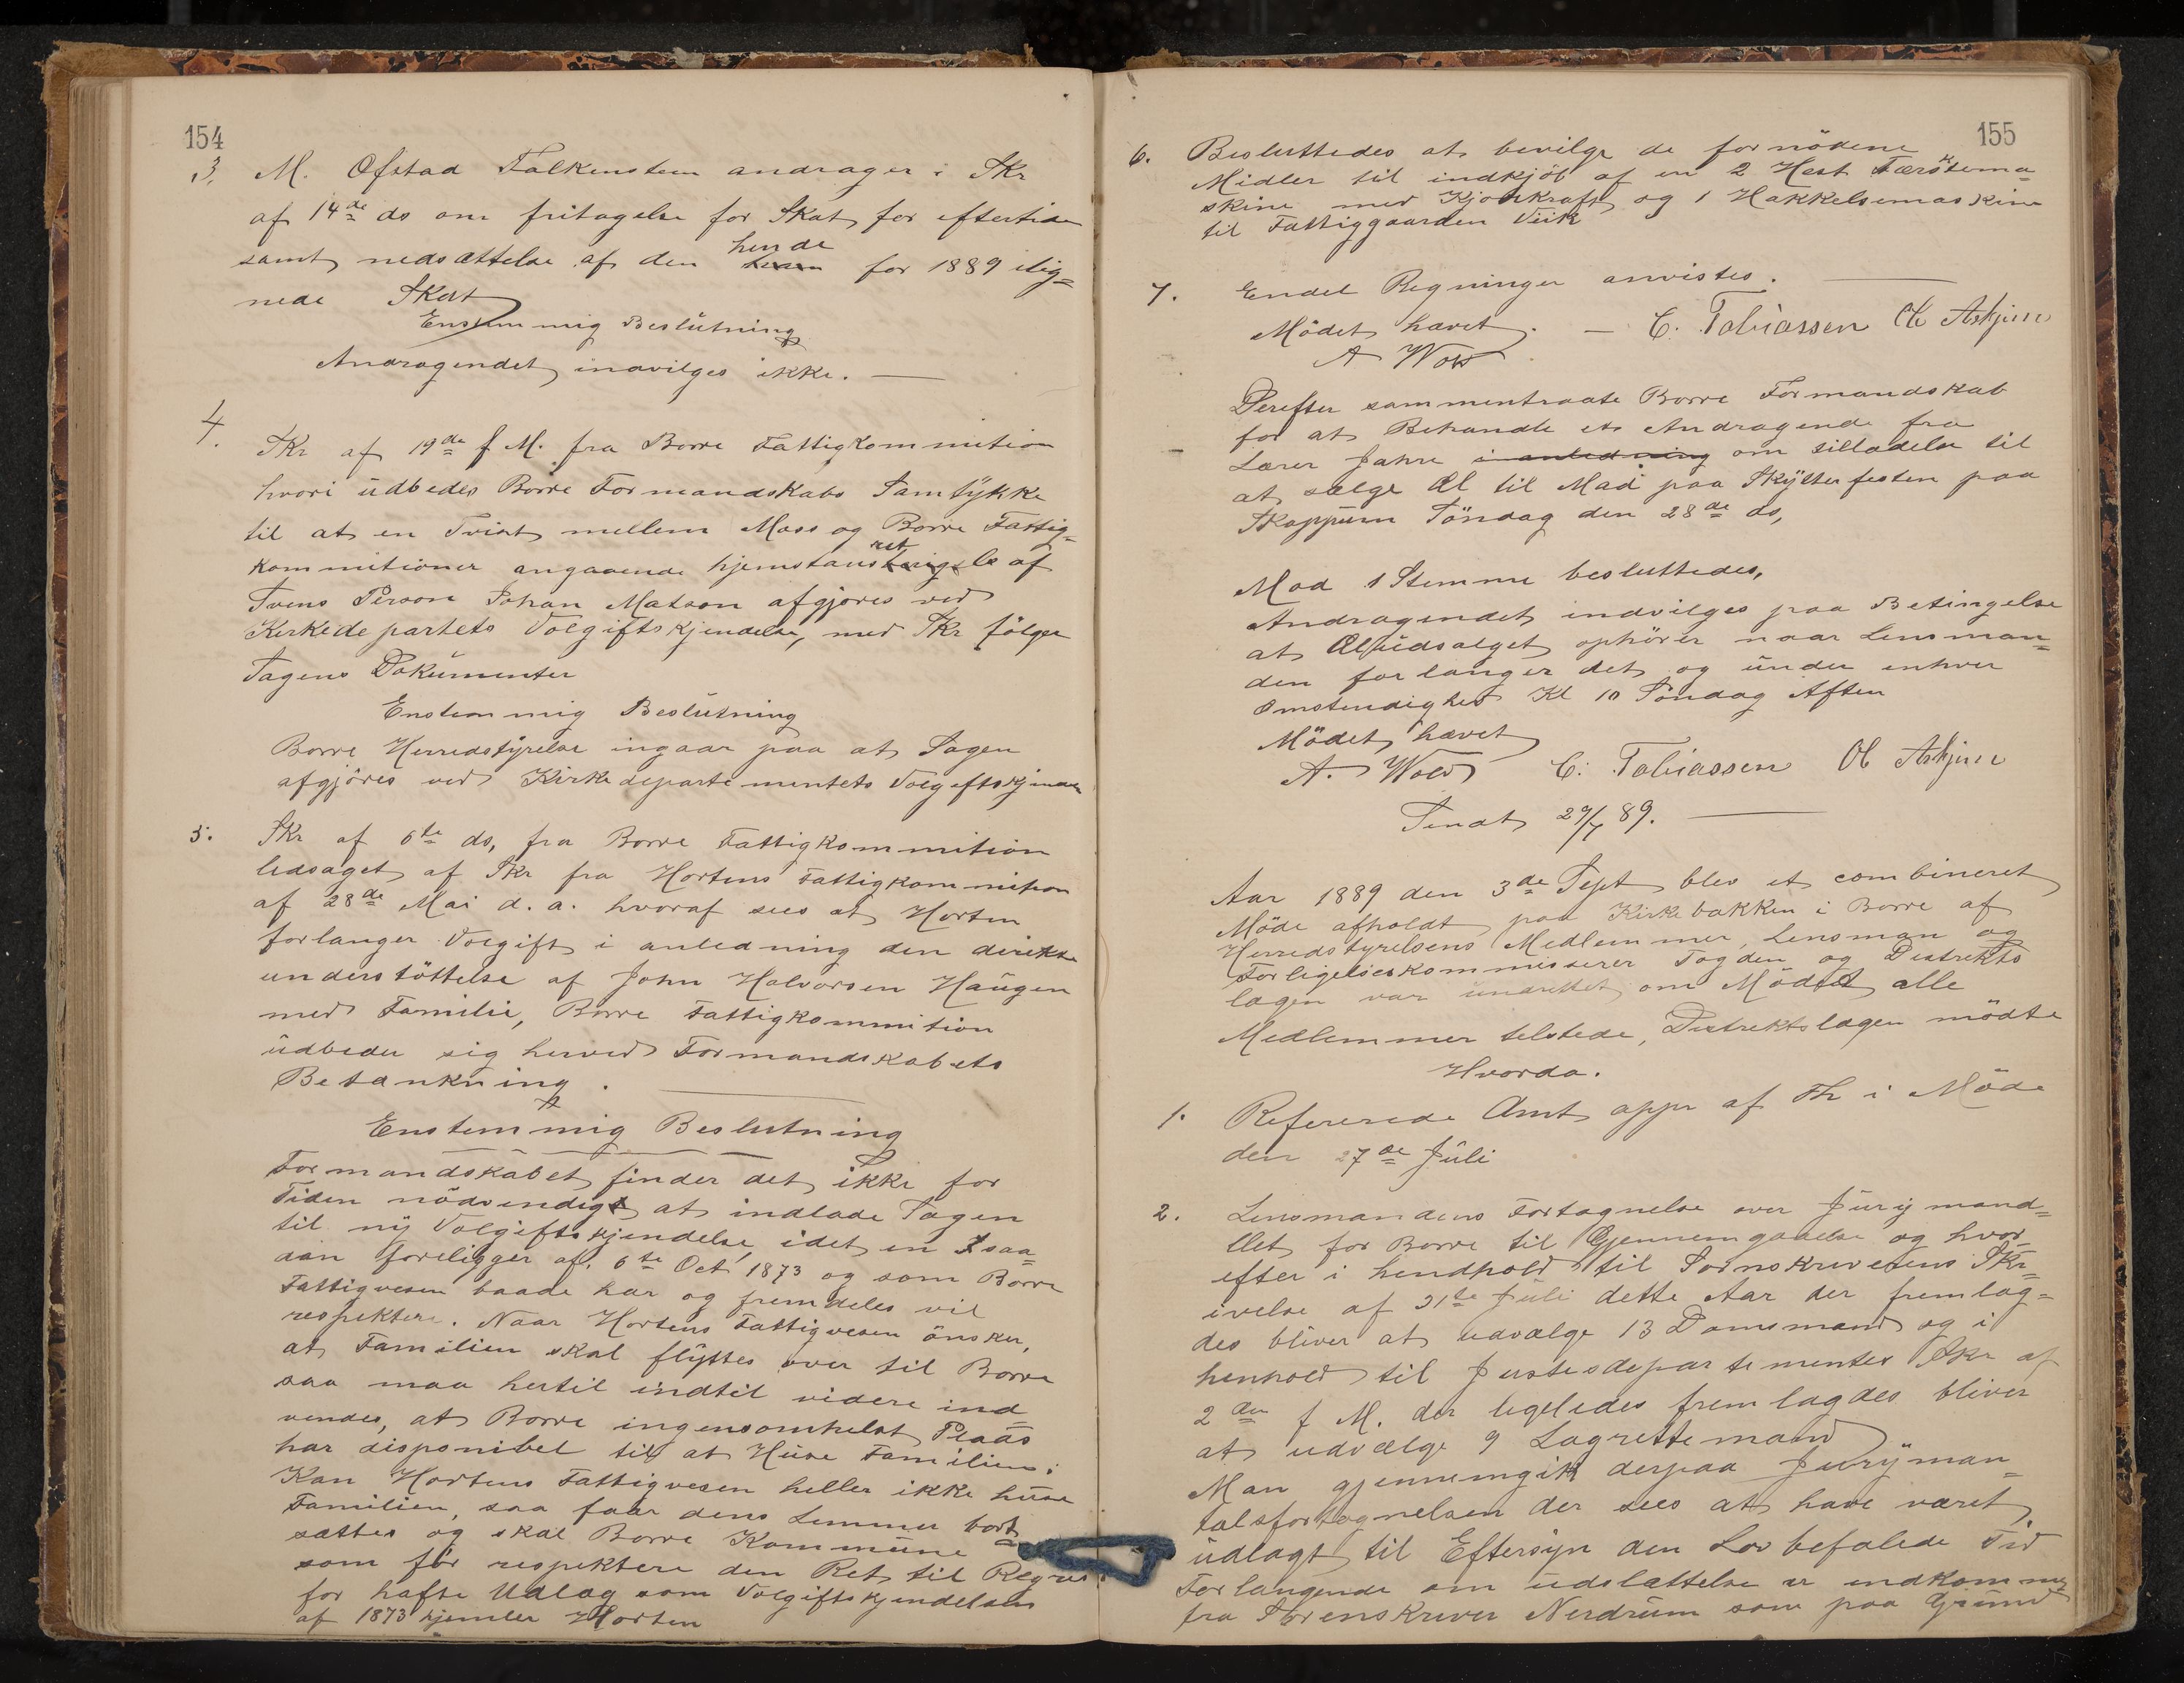 154
3. M. Ofstad Falkensten andrager i Skr
af 14de ds om fritagelse for Skat for eftertiden
samt nedsættelse af den hende for 1889 ilig=
nede Skat
Enstemmig Beslutning
Andragendet indvilges ikke. —
4. Skr af 19de f M. fra Borre Fattigkommition
hvori udbedes Borre Formandskabs Samtykke
til at en Tvist mellem Moss og Borre Fattig=
kommitioner angaaende hjemstavnsret af
Svens Person Johan Matson afgjores ved
Kirkedepartets Volgiftskjendelse, med Skr følger
Sagens Dokumenter
Enstemmig Beslutning
Borre Herredstyrelse ingaar paa at Sagen
afgjöres ved Kirkedepartementets Volgiftskjendelse
5. Skr af 6te ds, fra Borre Fattigkommition
ledsaget af Skr fra Hortens Fattigkommition
af 28de Mai d. a. hvoraf sees at Horten
forlanger Volgift i anledning den direkte
understöttelse af John Halvorsen Haugen
med Familie, Borre Fattigkommition
udbeder sig herved Formandskabets
Betænkning.
Enstemmig Beslutning
Formandskabet finder det ikke for
Tiden nödvendigt at indlade Sagen
til ny Volgiftskjendelse idet en saa=
dan foreligger af 6te Oct 1873 og som Borre
Fattigvesen baade har og fremdeles vil
respektere. Naar Hortens Fattigvesen önsker,
at Familien skal flyttes over til Borre
saa maa hertil indtil videre ind=
vendes, at Borre ingensomhelst Plads
har disponibel til at Huse Familien;
Kan Hortens Fattigvesen heller ikke huse
Familien, saa faar dens Lemmer bort=
sættes og skal Borre Kommune
som för respektere den Ret til Regres
for hafte Udlæg som Volgiftskjendelsen
af 1873 hjemler Horten
155
6. Besluttedes at bevilge de fornödene
Midler til indkjöb af en 2 Hest Tærskema=
skine med og 1 Hakkelsemaskine
til Fattiggaarden Viik
7. Endel Regninger anvistes. —
Mödet hævet. — C. Tobiassen Ol Askjem
A Wold
Derefter sammentraate Borre Formandskab
for at Behandle et Andragende fra
Lærer Jahre i anledning om tilladelse til
at sælge Øl til Mad paa Skytterfesten paa
Skoppum Söndag den 28de ds,
Mod 1 Stemme besluttedes,
Andragendet indvilges paa Betingelse
at Øludsalget ophörer naar Lensman=
den forlanger det og under enhver
Omstendighed Kl 10 Söndag Aften
Mödet hævet
A. Wold C. Tobiassen Ol Askjem
Sendt 29/7 89. —
Aar 1889 den 3de Sept blev et combineret
Möde afholdt paa Kirkebakken i Borre af
Herredstyrelsens Medlemmer, Lensman og
Forligelseskommisserer Fogden og Distrikts
lægen var undrettet om Mödet alle
Medlemmer tilstede, Distriktslægen mödte
Hvorda.
1. Refererede Amt appr af Fh i Möde
den 27de Juli
2. Lensmandens Fortegnelse over Jurymand=
tlet for Borre til Gjennemgaaelse og hvor=
efter i hendhold til Sornskreverens Skr=
ivelse af 31te Juli dette Aar der fremlag=
des bliver at udvælge 13 Domsmænd og i
henhold til Justisdepartementes Skr af
2den f M. der ligeledes fremlagdes bliver
at udvælge 9 Lagrettemænd
Man gjennemgik derpaa Juryman=
talsfortegnelsen der sees at have været
udlagt til Eftersyn den Lovbefalede Tid
Forlangende om udslættelse er indkommet
fra Sorenskriver Nerdrum som paa Grund